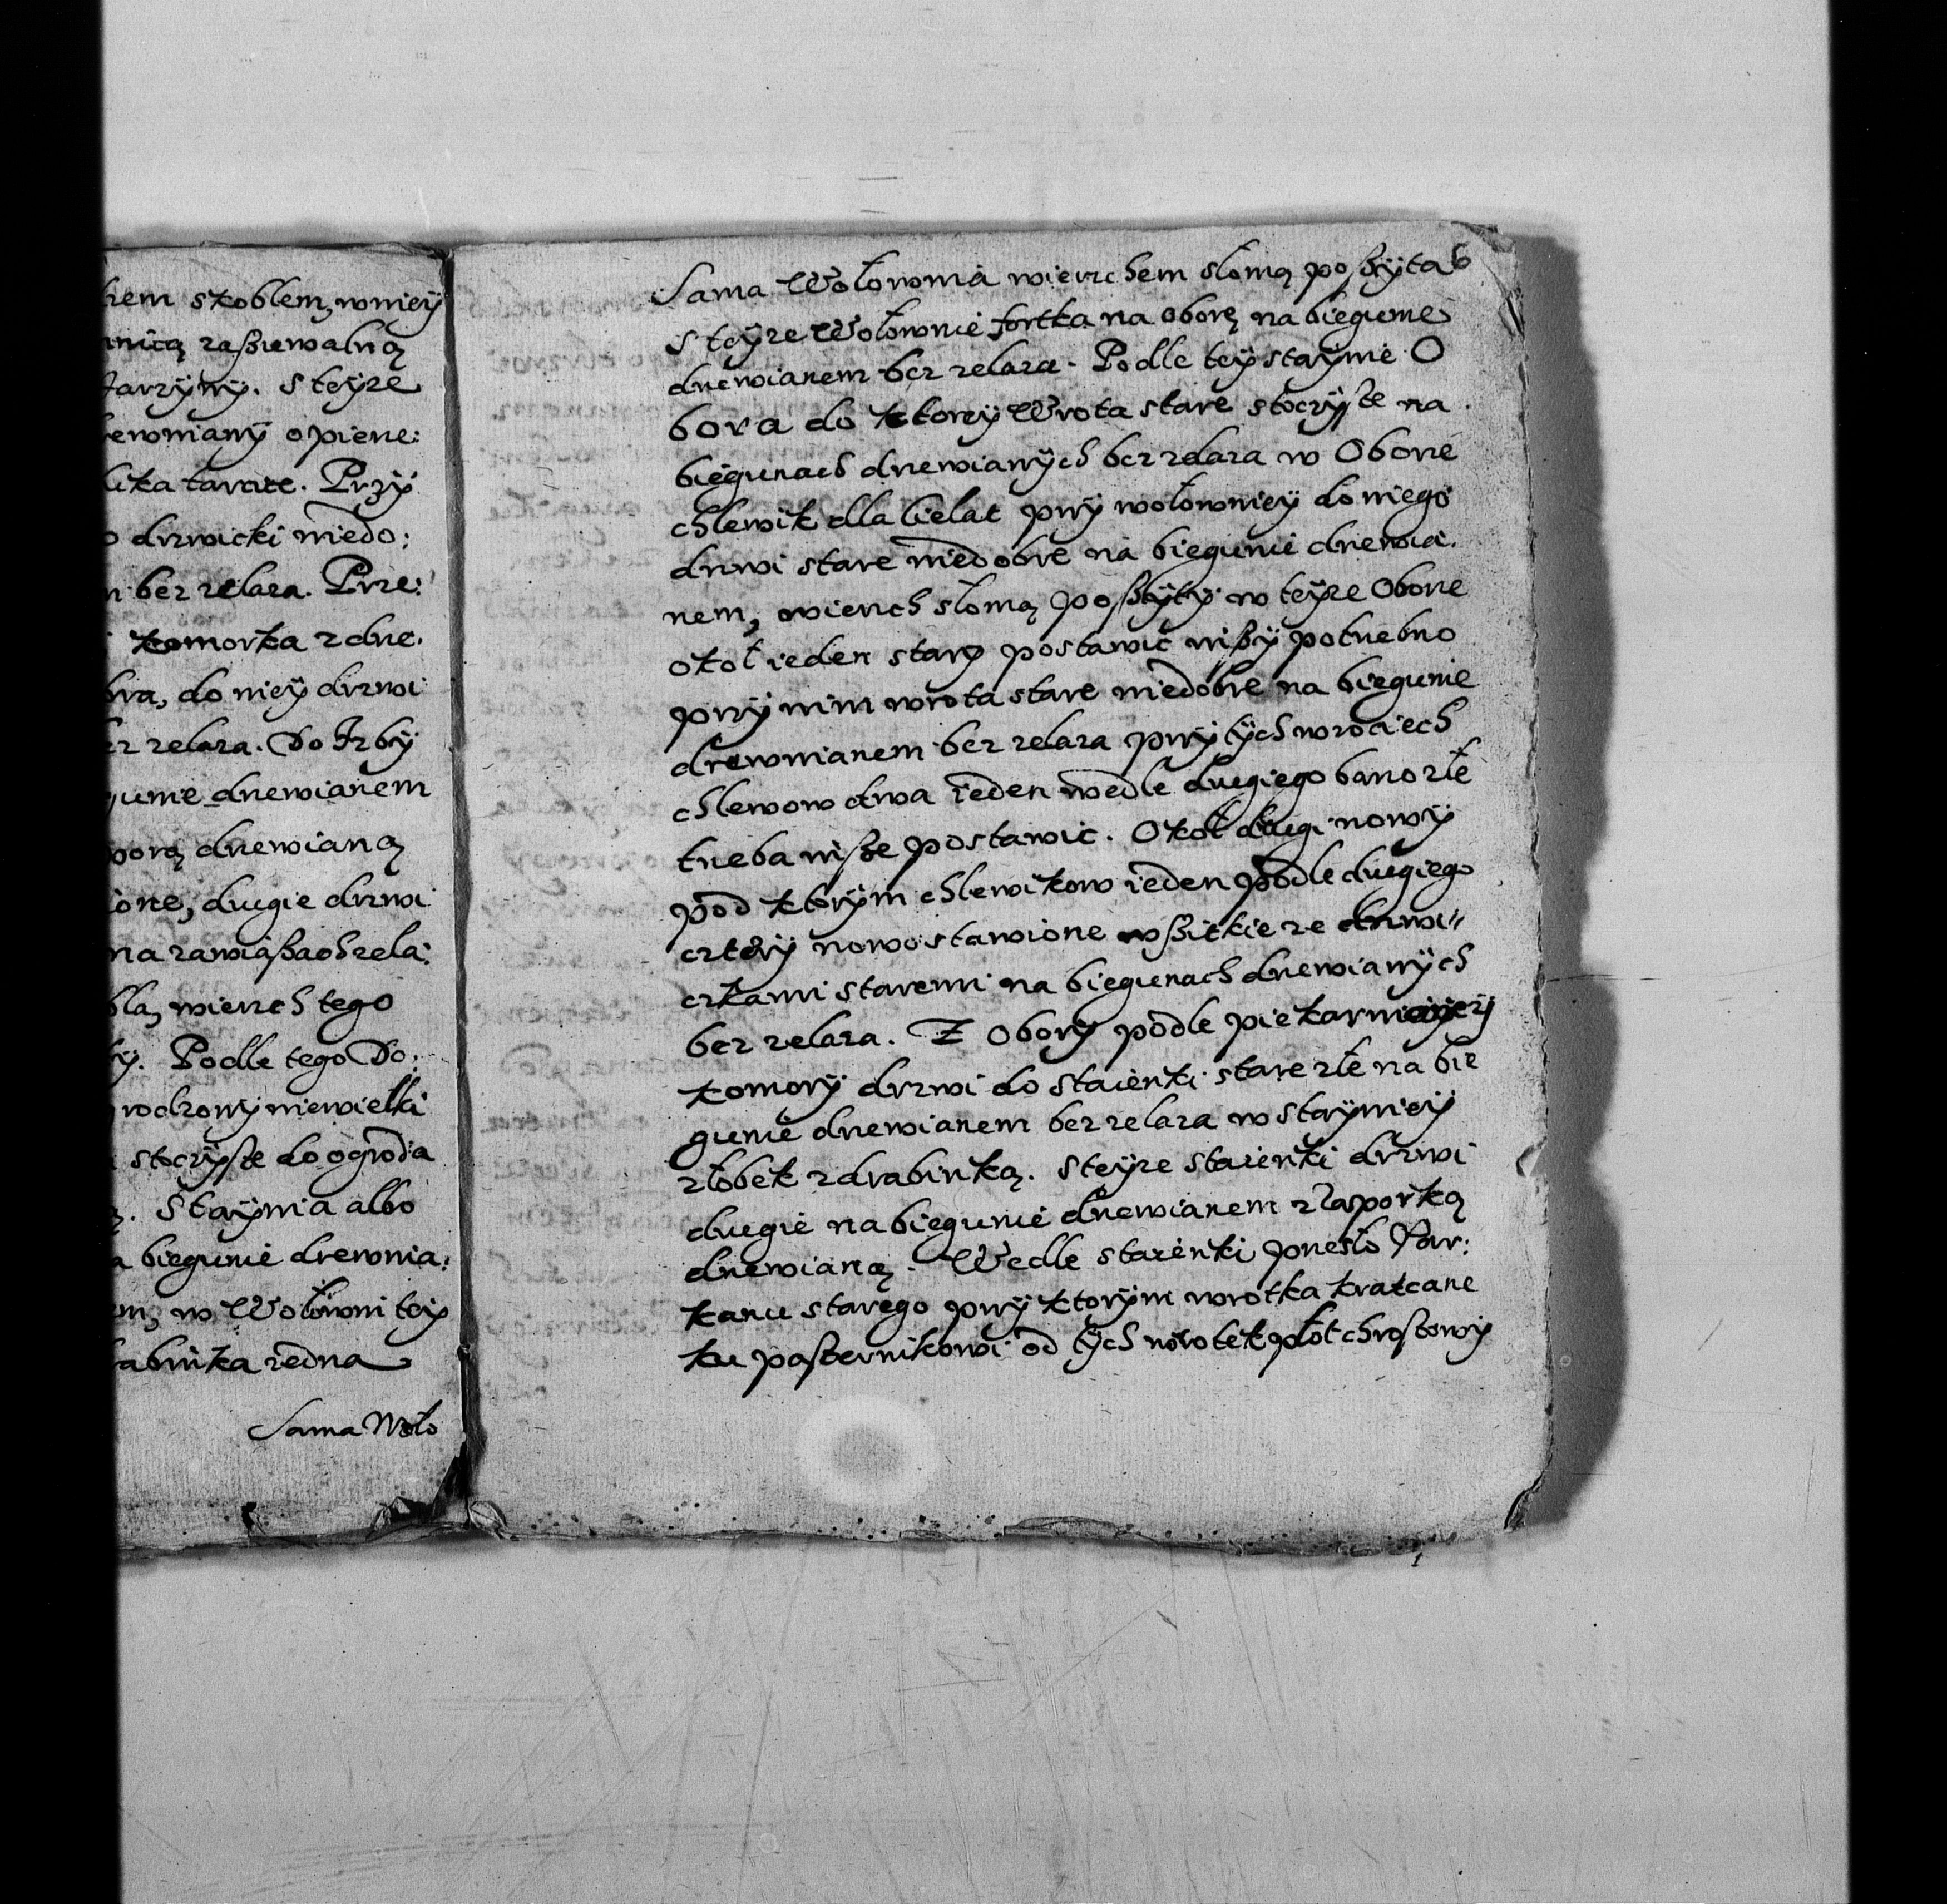 hem skoblem, wniey
nnicą zaßiewalną
tarzyny. S teÿze
rewnianÿ opiene:
lika tarcic. Przÿ
o drzwicki niedo:
n bez zelaza. Prze:
komorka z dre.
bra, do nieÿ drzwi
ez zelaza. Do Izbÿ
gunie drzewianem
porą drzewianą
ione, drugie drzwi
na zawiaßach zela:
bla, wierzch tego
ÿ. Podle tego Do:
rodzowÿ niewielki
stoczÿste do ogroda
ą. Staÿnia albo
a biegunie drewnia:
em, w Wołowni teÿ
rabinka iedna
Sama Woło
Sama Wołownia wierzchem słomą poßÿta 6
S teÿze Wołownie fortka na oborę na biegunie
drzewianem bez zelaza. Podle teÿ staÿnie O
bora do ktoreÿ Wrota stare stoczÿste na
biegunach drzewianÿch bez zelaza w Oborze
chlewik dla cielat przÿ wołownieÿ do niego
drzwi stare niedobre na biegunie drzewia.
nem, wierzch słomą poßÿtÿ w teÿze Oborze
okoł ieden starÿ postawic nißÿ potrzebno
przÿ nim wrota stare niedobre na biegunie
drewnianem bez zelaza przÿ tÿch wrociech
chlewow dwa ieden wedle drugiego barzo złe
trzeba niße postawic. Okoł drugi nowÿ
pod ktorÿm chlewikow ieden podle drugiego
czterÿ nowo stawione wßitkie ze drzwi"
czkami staremi na biegunach drzewianÿch
bez zelaza. Z Oborÿ podle piekarnieÿ
komorÿ drzwi do staienki stare złe na bie
gunie drzewianem bez zelaza w staÿnieÿ
złobek z drabinką. S teÿze staienki drzwi
drugie na biegunie drzewianem z zasporką
drzewianą. Wedle staienki przesło Par:
kanu starego przÿ ktorÿm wrotka kratcane
ku paßternikowi od tÿch wrotek płot chrostowÿ